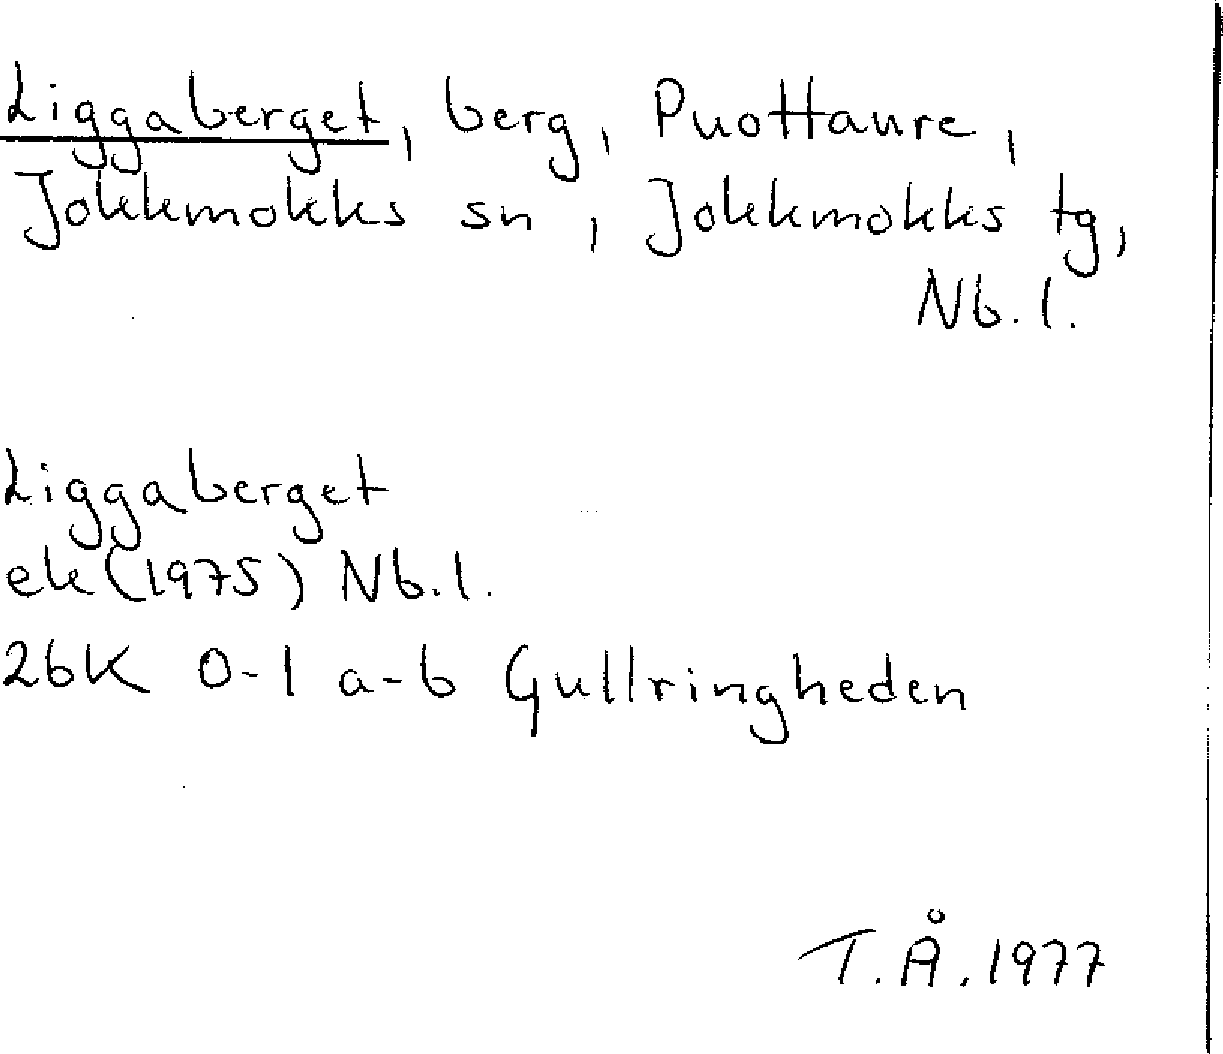 Liggaberget, berg, Puottaure,
Jokkmokks sn, Jokkmokks tg,
Nb.l.
Liggaberget
ek (1975) Nb.l.
26K 0-1 a-b Gullringheden
T.Å. 1977